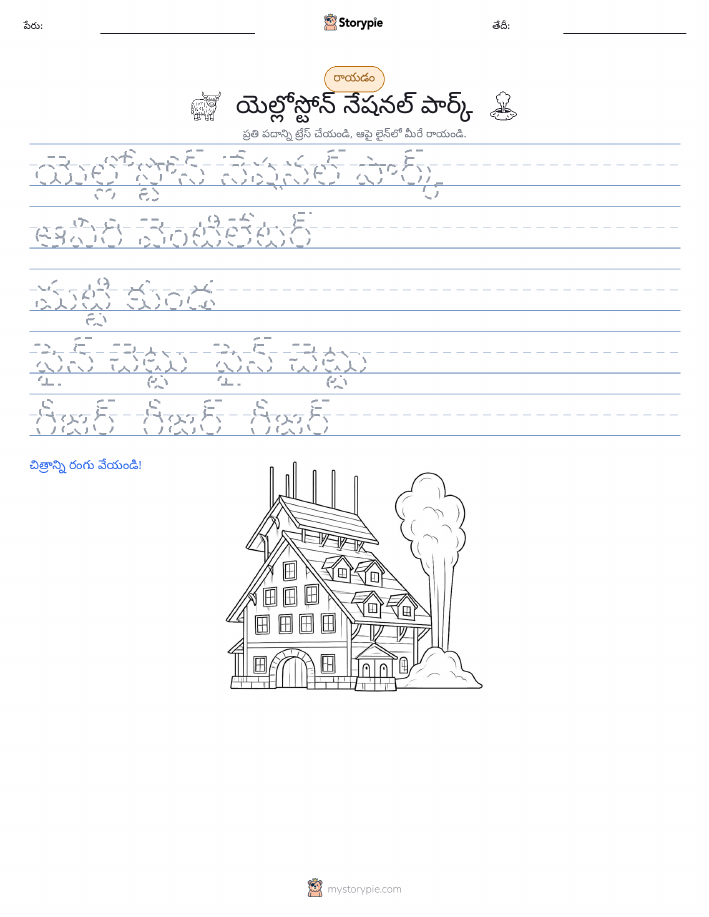 పేరు:
Storypie
తేదీ:
రాయడం
యెల్లోస్టోన్ నేషనల్ పార్క్
ప్రతి పదాన్ని ట్రేస్ చేయండి, ఆపై లైన్‌లో మీరే రాయండి.
యెల్లోస్టోన్ నేషనల్ పార్క్
ఆవిరి వెంటిలేటర్
మట్టి కుండ
పైన్ చెట్టు పైన్ చెట్టు
గీజర్ గీజర్ గీజర్
చిత్రాన్ని రంగు వేయండి!
mystorypie.com